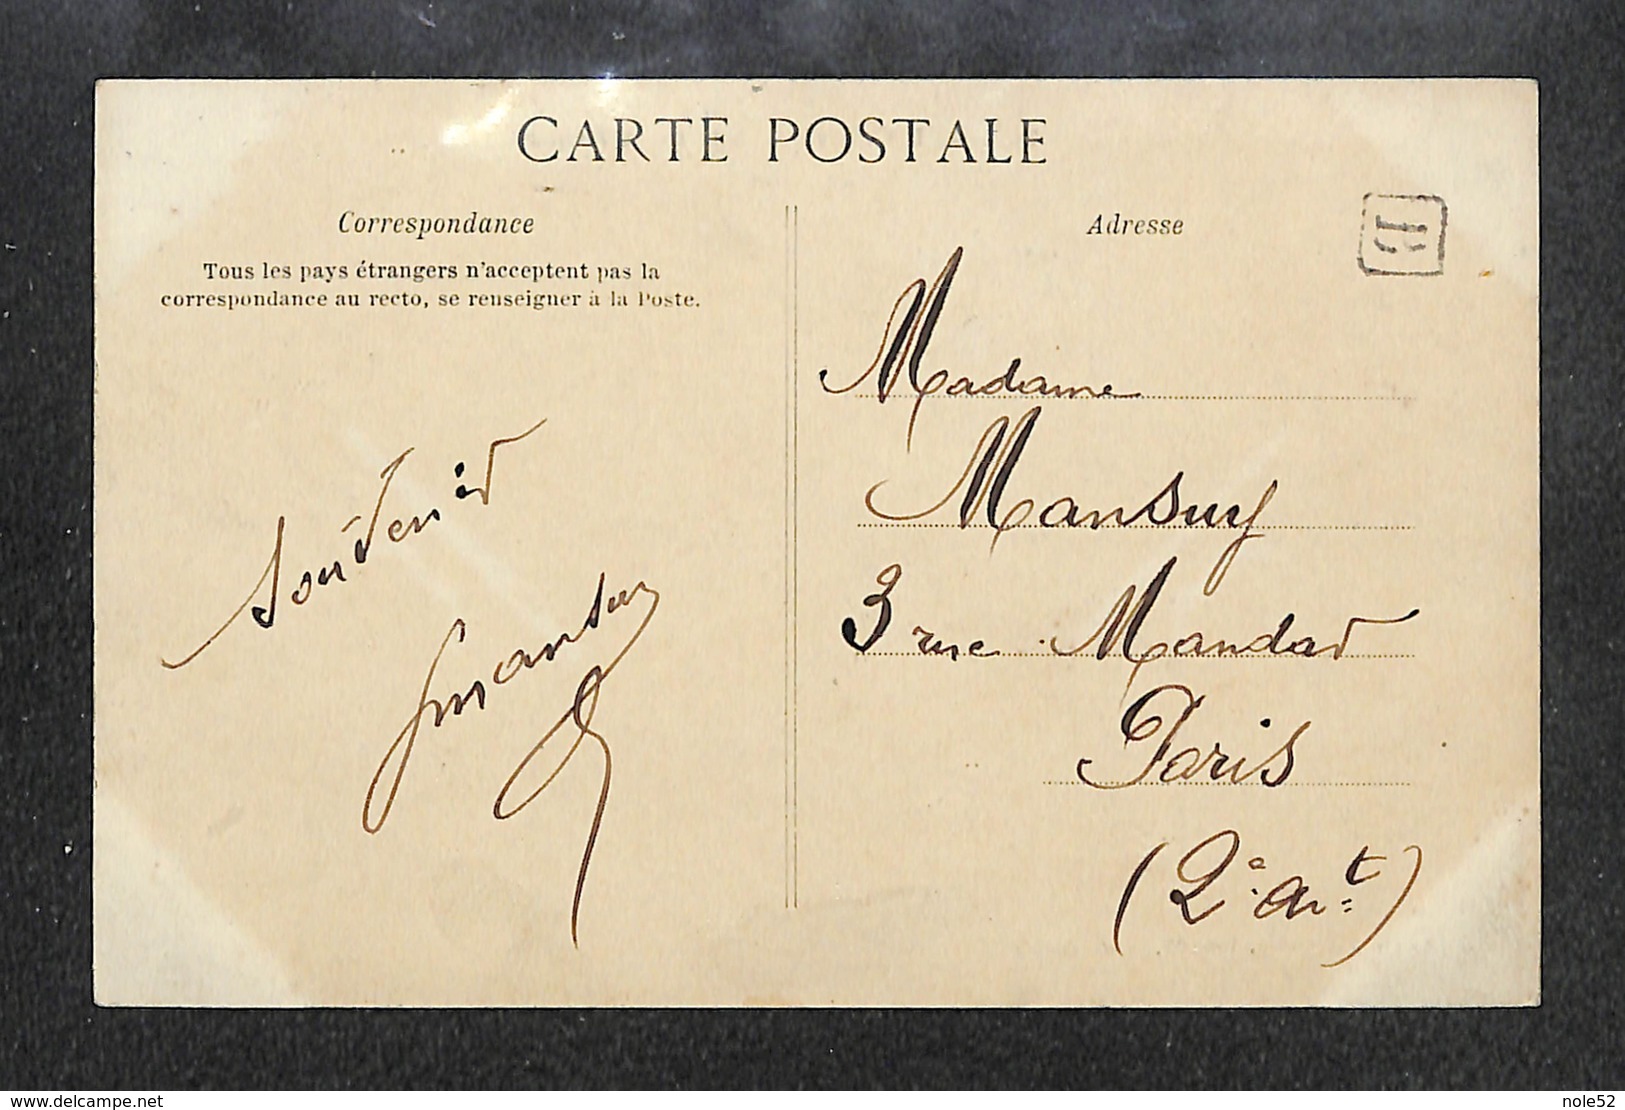 CARTE POSTALE
Correspondance
Tous les pays étrangers n'acceptent pas la
correspondance au recto, se renseigner à la Poste.
Souvenir
Mansuy
Adresse
E
Madame
Mansuy
3 rue Mandar
Paris
(2e art)
website: delcampe.net
nole52